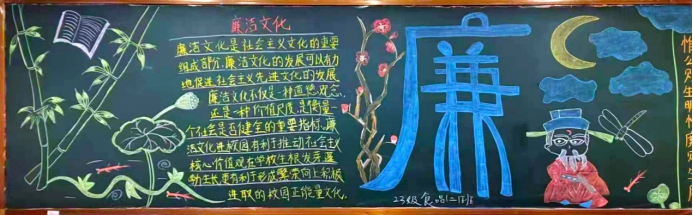 廉洁文化
廉洁文化是社会主义文化的重要
组成部分,廉洁文化的发展可以有力
地促进社会主义先进文化的发展
廉洁文化不仅是一种道德观念,
还是一种价值尺度,是衡量一
个社会是否健全的重要指标,廉
洁文化进校园有利于推动社会主义
核心价值观在学校生根发芽蓬
勃生长更有利于形成繁荣向上积极
进取的校园正能量文化。
廉
23级食品二班
公生明